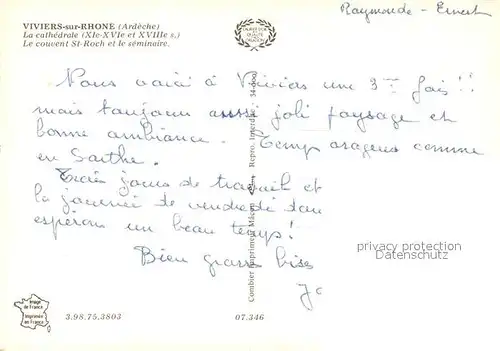 VIVIERS-sur-RHONE (Ardèche)
La cathédrale (XIe-XVIe et XVIIIe s.)
Le couvent St-Roch et le séminaire.
Raymonde - Ernest
Nous voici à Vivias une 3me fois !!
mais toujours aussi joli paysage et
bonne ambiance. Temps orageux comme
en Sarthe.
Trois jours de travail et
la journée de vendredi
espérons un beau temps !
Bien grosses bises
Combier Imprimeur Mâcon
Repro. Interdite
privacy protection
delcampe.net
Image de France
Imprimée en France
3.98.75.3803
07.346